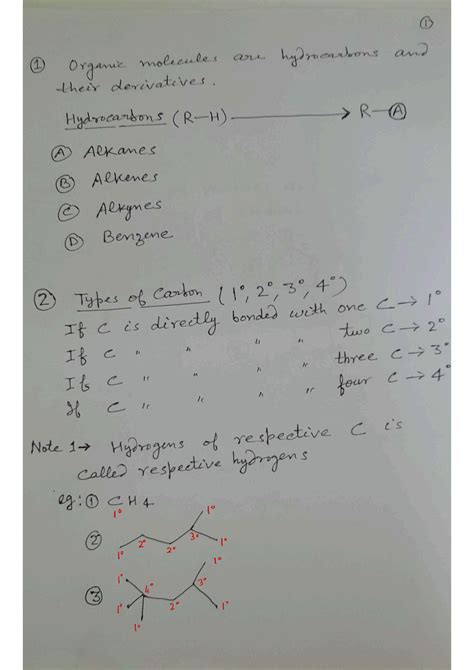 ①
① Organic molecules are hydrocarbons and
their derivatives.
Hydrocarbons (R—H) ⟶ R—Ⓐ
Ⓐ Alkanes
Ⓑ Alkenes
Ⓒ Alkynes
Ⓓ Benzene
② Types of Carbon (1°, 2°, 3°, 4°)
If C is directly bonded with one C → 1°
If C " " " " two C → 2°
If C " " " " three C → 3°
If C " " " " four C → 4°
Note 1→ Hydrogens of respective C is
called respective hydrogens
eg: ① CH4
1°
② 1° 2° 2° 3° 1° 1°
③ 1° 1° 1° 4° 2° 3° 1° 1°